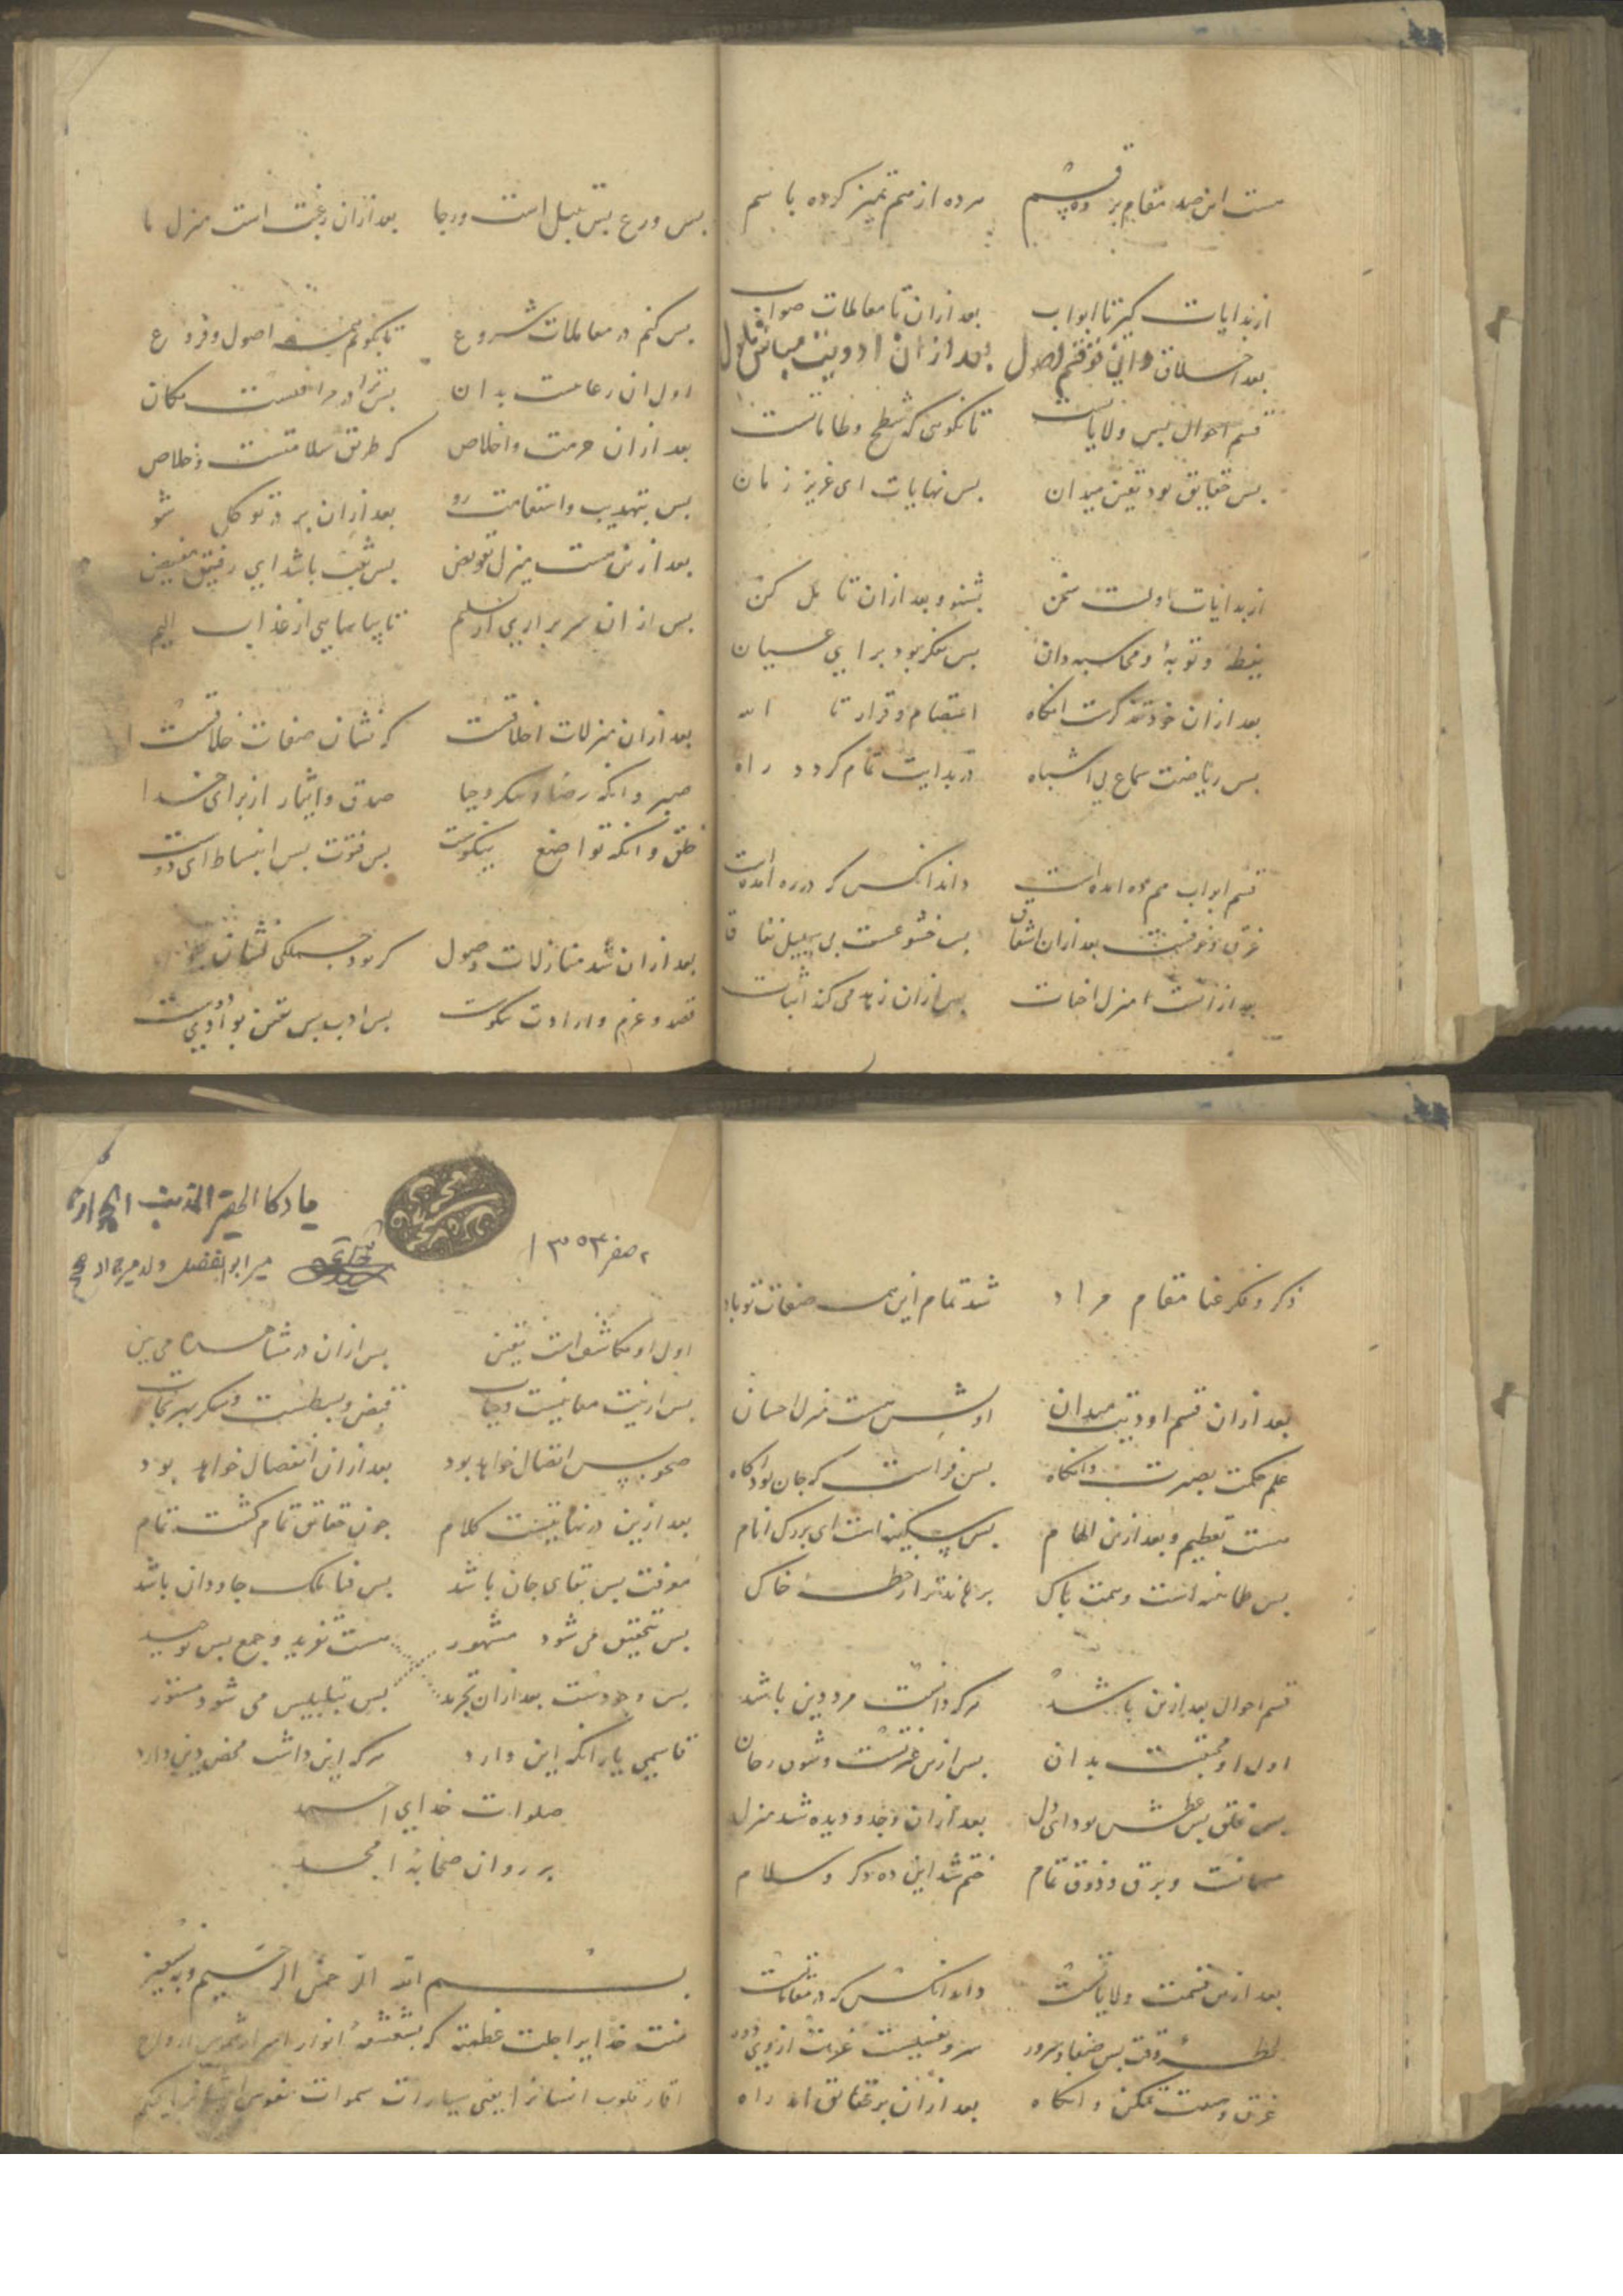 هست این صد مقام بر ده قسم
هر ده از هم تمیز کرده با سم
از بدایات کیر تا ابواب
بعد ازان تا معاملات صواب
بعد اخلاق دانی قسم اصول
بعد ازان اودیت
قسم احوال بس ولایاتست
تا نکویی که شطح و طاماتست
بس حقایق بود یقین میدان
بس نهایات ای عزیز زمان
از بدایات اولت سخن
بشنو و بعد ازان تامل کن
یقظه و توبه و محاسبه دان
بس تفکر بود برای عسیان
بعد ازان خود تذکرست انکاه
اعتصام و فرار تا الله
بس ریاضت سماع بی اشباه
در بدایت تمام کردد راه
قسم ابواب هم ده امده است
داند انکس که در ره امده است
حزن و خوفست بعد ازان اشفاق
بس خشوعست بی سبیل نفاق
بعد ازانست منزل اخبات
بس ازان زهد می کند اثبات
بس ورع بس تبتل است و رجا
بعد ازان رغبت است منزل ما
بس کنم در معاملات شروع
تا بکویم همه اصول و فروع
اول ان رعایت بدان
بس ترا در مراقبست مکان
بعد ازان حرمت و اخلاص
که طریق سلامتست و خلاص
بس بتهذیب و استقامت رو
بعد ازان بر در توکل شو
بعد ازین هست منزل تفویض
بس ثقت باشد ای رفیق مفیض
بس ازان سر براری از تسلیم
تا بیاسایی از عذاب الیم
بعد ازان منزلات اخلاقست
که نشان صفات خلاقست
صبر وانکه رضا و شکر و حیا
صدق و ایثار از برای خدا
خلق وانکه تواضع نیکوست
بس فتوت بس انبساط ای دوست
بعد ازان شد منازلات وصول
که بود جملکی نشان
قصد و عزم و ارادت نکوست
بس ادب بس یقین بود
ذکر و فکر غنا مقام مراد
شد تمام این همه صفات تو باد
بعد ازان قسم اودیت میدان
اولش هست منزل احسان
علم حکمت بصیرت وانکاه
بس فراست که جان بود اکاه
هست تعظیم و بعد ازین الهام
بس سکینه است ای بزرک انام
بس طمانینه است و همت پاک
برهاند ترا ز خطه خاک
قسم احوال بعد ازین باشد
هر که دانست مرد دین باشد
اول او محبتست بدان
بس ازین غیرتست و شوق
بس قلق بس عطش بود ای دل
بعد ازان وجد و دیده شد منزل
هیمانست و برق و ذوق تمام
ختم شد این ده دکر و سلام
بعد ازین قسمت ولایاتست
داند انکس که در مقاماتست
لحظه وقت بس صفا و سرور
غرق و غیبت تمکن وانکاه
بعد ازان بر حقایق اید راه
۲ صفر ۱۳۵۳
میر ابو الفضل ولد میر
اول او مکاشف است یقین
بس ازان در مشاهده می بین
بس ازینت معاینیت وحیات
قبض و بسطست و سکر بهر نجات
صحو بس اتصال خواهد بود
بعد ازان انفصال خواهد بود
بعد ازین در نهایتست کلام
چون حقایق تمام کشت تمام
معرفت بس بقای جان باشد
بس فنا ملک جاودان باشد
بس تحقیق می شود مشهور
هست تفرید و جمع بس توحید
بس وجودست بعد ازان تجرید
بس بتلبیس می شود مستور
قاسمی یار انکه این دارد
هر که این داشت محض دین دارد
صلوات خدای احمد
بر روان صحابه امجد
بسم الله الرحمن الرحیم وبه نستعین
منت خدایرا جلت عظمته که بشعشعه انوار اسرار شموس ارواح
اقمار قلوب انسانرا یعنی سیارات سموات نفوس